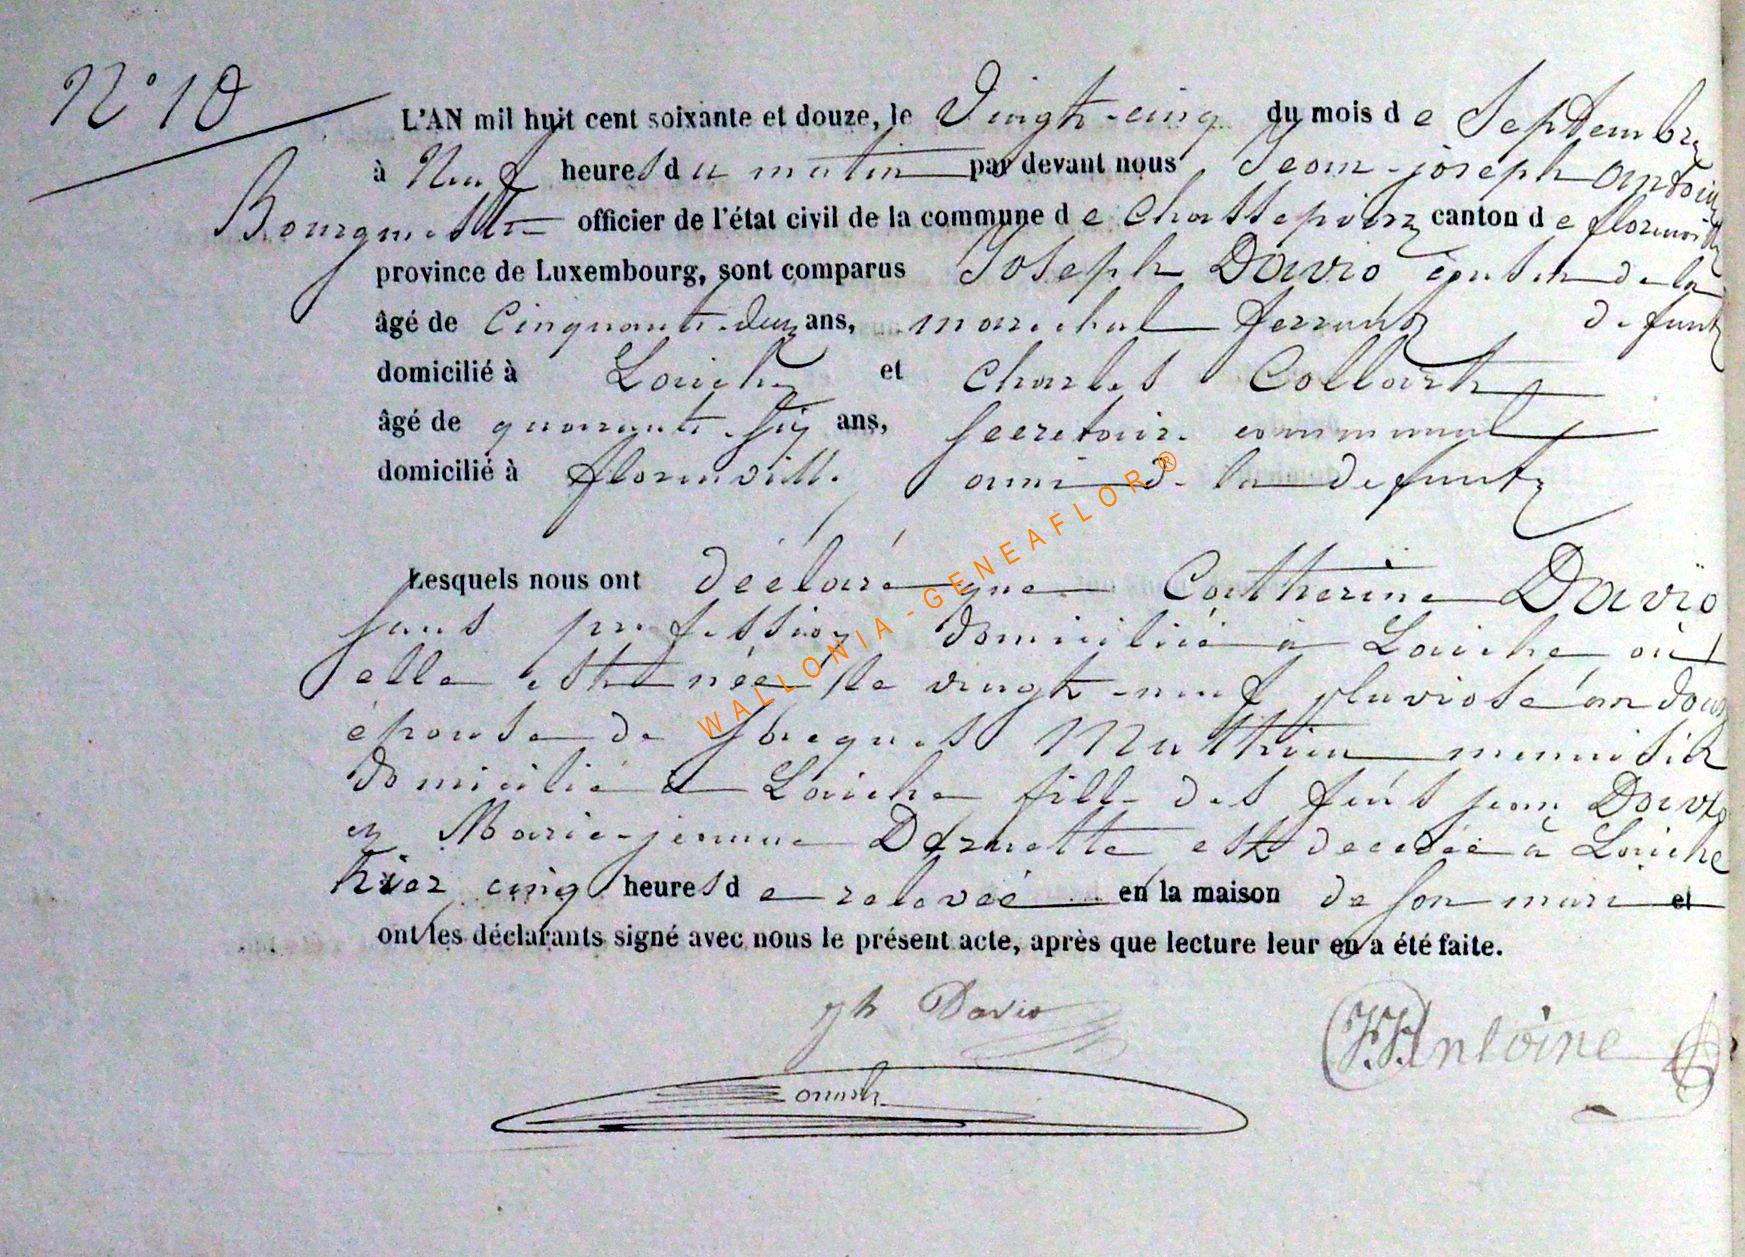 N° 10
L'AN mil huit cent soixante et douze, le Vingt-cinq du mois de Septembre
à Neuf heures du matin par devant nous Jean-joseph antoine
Bourgmestre officier de l'état civil de la commune de Chassepierre canton de florenville
province de Luxembourg, sont comparus Joseph Davio cousin de la
âgé de Cinquante-deux ans, marechal ferrant defunte
domicilié à Laiche et Charles Collart
âgé de quarante-six ans, secretaire communal
domicilié à florenville ami de la defunte
Lesquels nous ont déclaré que Catherine Davio
sans profession domiciliée à Laiche où
elle est née le vingt-neuf pluviose an douze
épouse de Jacques Mathieu menuisier
domicilié à Laiche fille des feus jean Davio
et Marie-jeanne est decedée à Laiche
hier cinq heures de relevée en la maison de son mari et
ont les déclarants signé avec nous le présent acte, après que lecture leur en a été faite.
jh Davio
J.J. Antoine
WALLONIA - GENEAFLOR ®